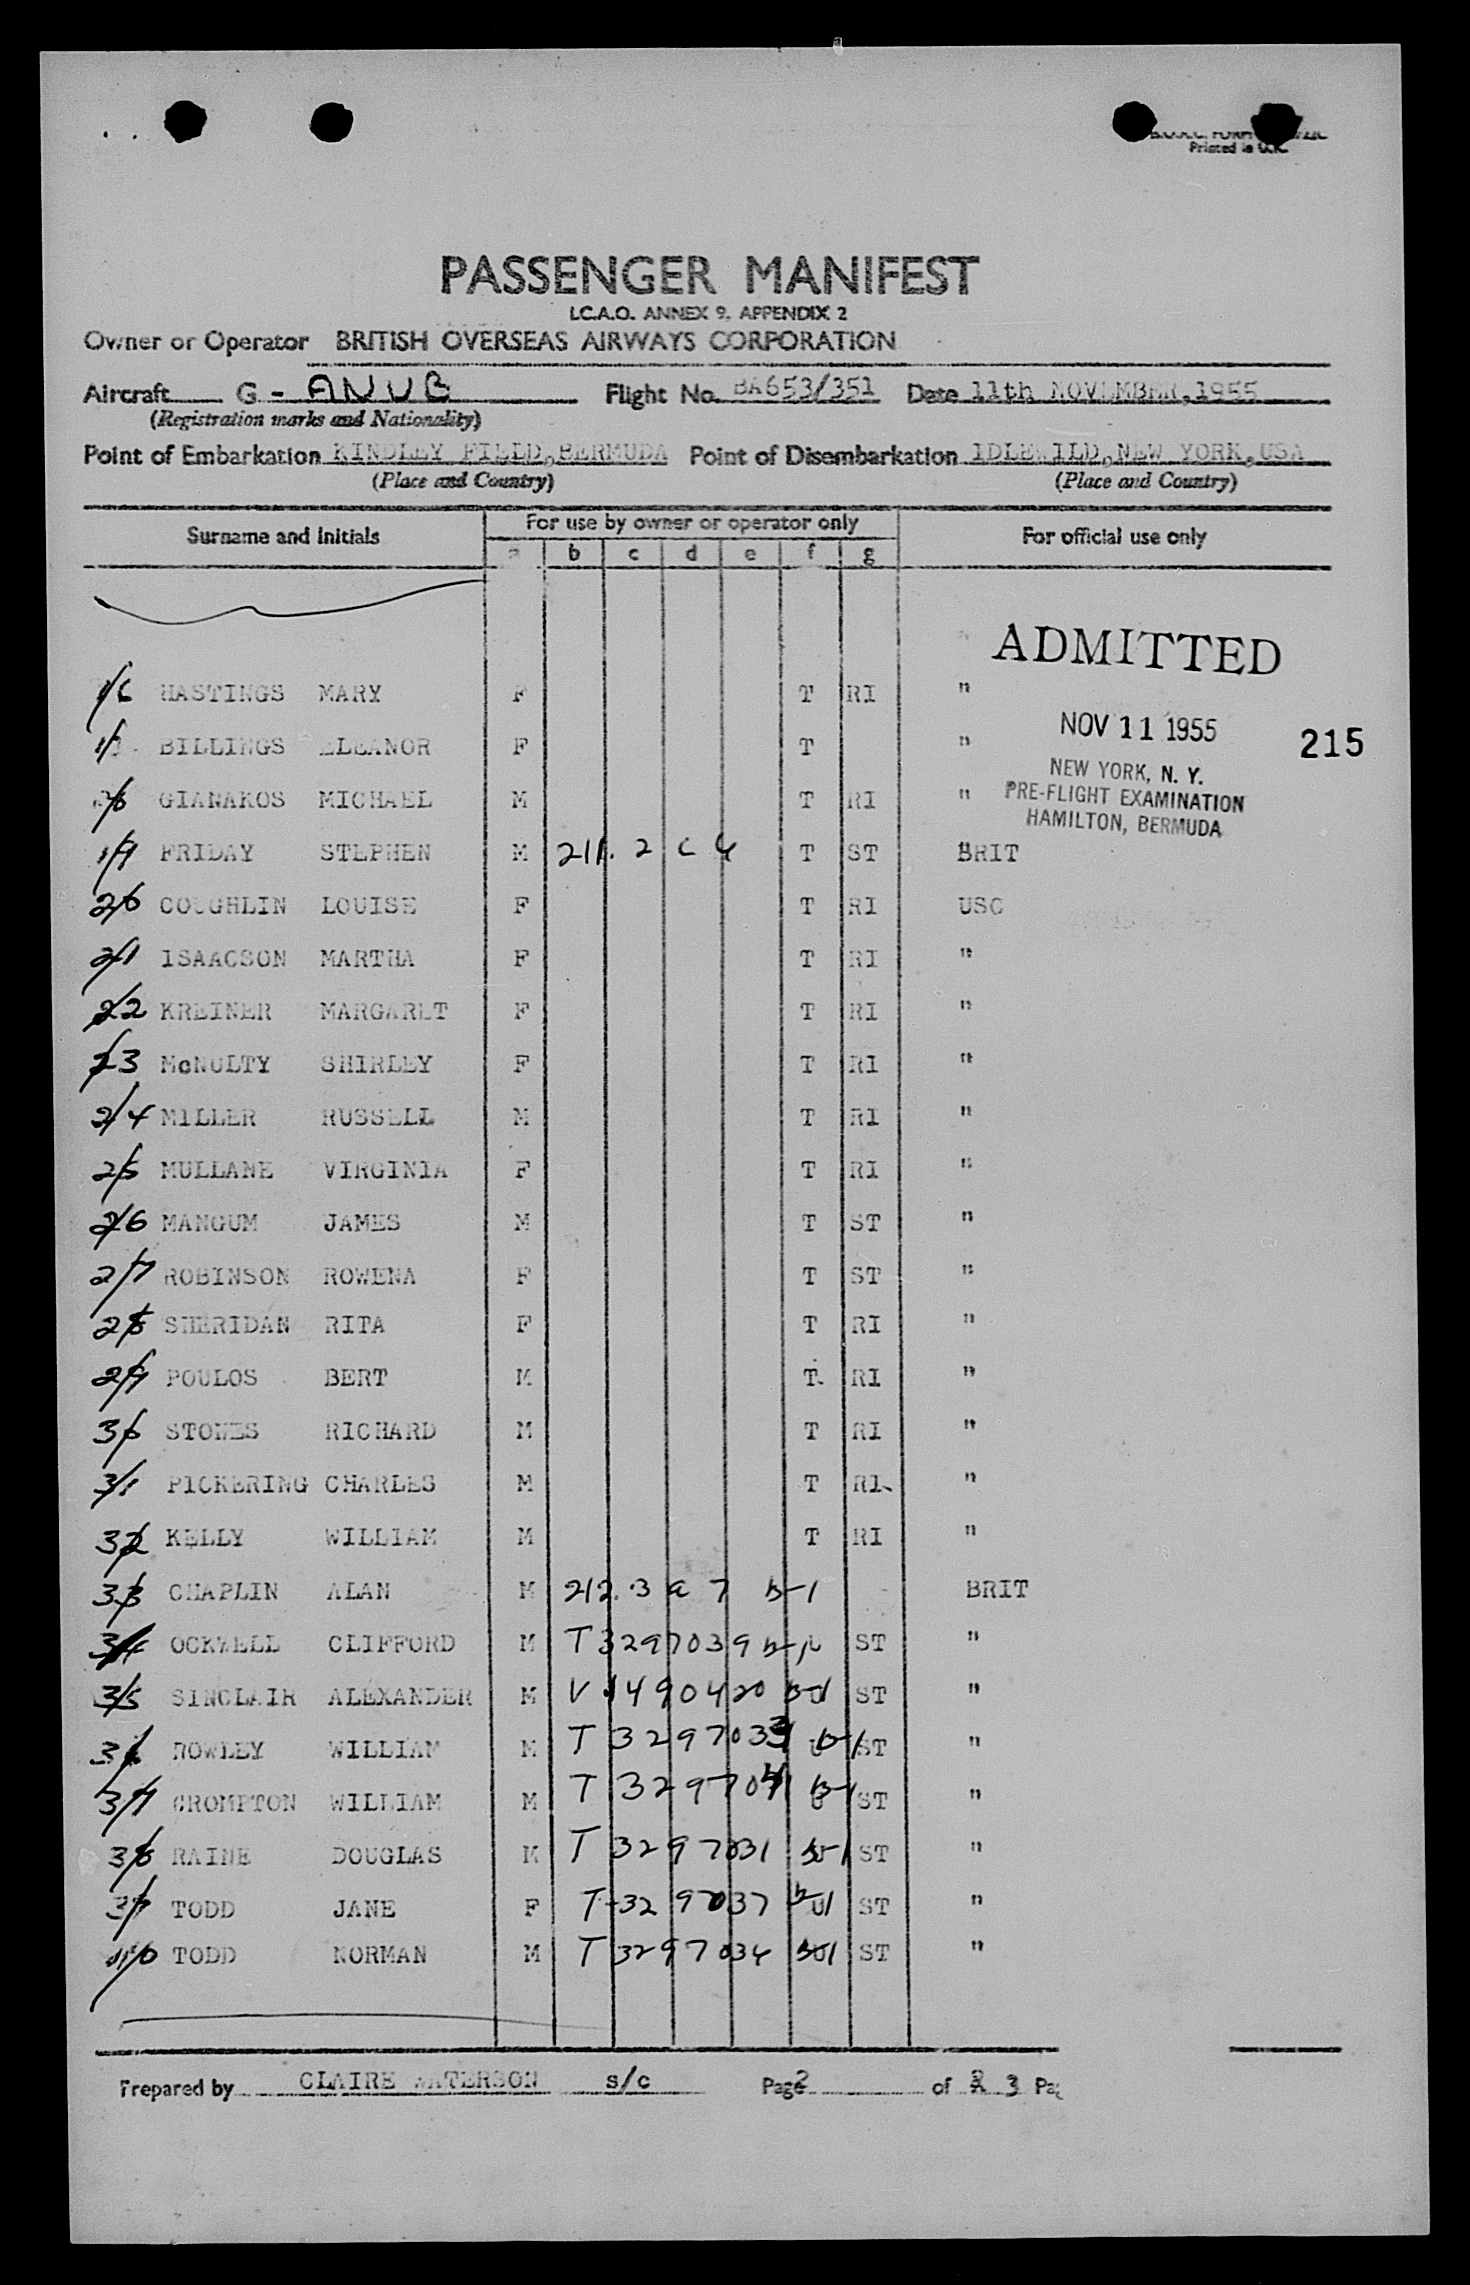 Printed in U.K.
PASSENGER MANIFEST
I.C.A.O. ANNEX 9, APPENDIX 2
Owner or Operator BRITISH OVERSEAS AIRWAYS CORPORATION
Aircraft G - ANUB Flight No. BA653/351 Date 11th NOVEMBER, 1955
(Registration marks and Nationality)
Point of Embarkation KINDLEY FIELD, BERMUDA Point of Disembarkation IDLEWILD, NEW YORK, USA
(Place and Country) (Place and Country)
Surname and Initials For use by owner or operator only For official use only
a b c d e f g
ADMITTED
16 HASTINGS MARY F T RI "
NOV 11 1955 215
17 BILLINGS ELEANOR F T "
NEW YORK, N. Y.
18 GIANAKOS MICHAEL M T RI "
PRE-FLIGHT EXAMINATION
HAMILTON, BERMUDA
19 FRIDAY STEPHEN M 211.2 C 4 T ST BRIT
20 COUGHLIN LOUISE F T RI USC
21 ISAACSON MARTHA F T RI "
22 KREINER MARGARET F T RI "
23 McNULTY SHIRLEY F T RI "
24 MILLER RUSSELL M T RI "
25 MULLANE VIRGINIA F T RI "
26 MANGUM JAMES M T ST "
27 ROBINSON ROWENA F T ST "
28 SHERIDAN RITA F T RI "
29 POULOS BERT M T RI "
30 STOWES RICHARD M T RI "
31 PICKERING CHARLES M T RI "
32 KELLY WILLIAM M T RI "
33 CHAPLIN ALAN M 212.3 a 7 B-1 BRIT
34 OCKWELL CLIFFORD M T 3297039 B-1 ST "
35 SINCLAIR ALEXANDER M V 1490420 B-1 ST "
36 ROWLEY WILLIAM M T 3297033 B-1 ST "
37 CROMPTON WILLIAM M T 3297041 B-1 ST "
38 RAINE DOUGLAS M T 3297031 B-1 ST "
39 TODD JANE F T-3297037 B-1 ST "
40 TODD NORMAN M T 3297034 B-1 ST "
Prepared by CLAIRE WATERSON s/c Page 2 of 3